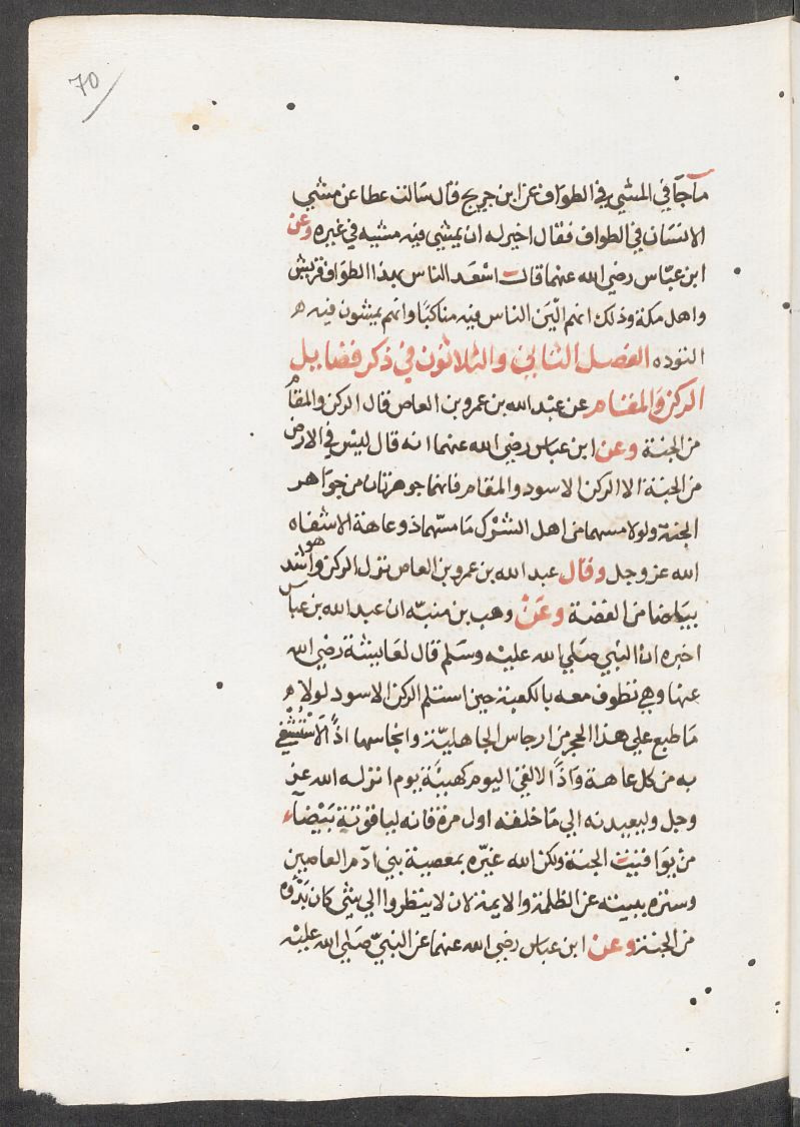 70
ماجآ في المشي في الطواف عن ابن جريج قال سالت عطا عن مشي
الانسان في الطواف فقال احب له ان يمشي فيه مشيه في غيره وعن
ابن عبّاس رضي الله عنهما قال اسْعَد الناس بهذا الطوَاف قريش
واهل مكة وذلك انهم الْيَن الناس فيه مناكبًا وانهم يمشون فيه ه
التوده الفصل الثاني والثلاثون في ذكر فضايل
الركن وَالمقام عن عبْد الله بن عمرو بن العاص قال الركن والمقام
من الجنة وعن ابن عباس رضي الله عنهما انه قال ليْس في الارض
من الجنة الا الركن الاسود والمقام فانهما جوهرتان من جوَاهر
الجنة ولولا مسهما من اهل الشرْك مَا مسّهما ذو عاهة الا شفاه
الله عز وجل وقال عبد الله بن عمرو بن العاص نزل الركن وهو اشد
بيَاضا من الفضة وعَنْ وهب بن منبّه ان عبد الله بن عباس
اخبره انْ النبي صَلي الله عليْه وسَلم قال لعَايشة رضي الله
عنها وهي تطوف معه بالكعبة حين استلم الركن الاسود لولا ه
مَا طبع علي هذا الحجر من ارجاس الجاهليّة وانجاسها اذًا لَاسْتُشْفِي
به من كل عاهة وَاذًا لالفي اليوم كهيئَة يوم انزله الله عز
وجل وليعيدنه الي مَا خلقه اول مرة فانه لياقوتة بَيْضآء
من يوَاقيْت الجنة ولكن الله غيّره بمعصية بني ادم العاصين
وستره ببيته عن الظلمة والايمة لان لا ينظروا الي شي كان بَدْؤُه
من الجنة وعن ابن عباس رضي الله عنهما عن النبيّ صَلي الله عليْه